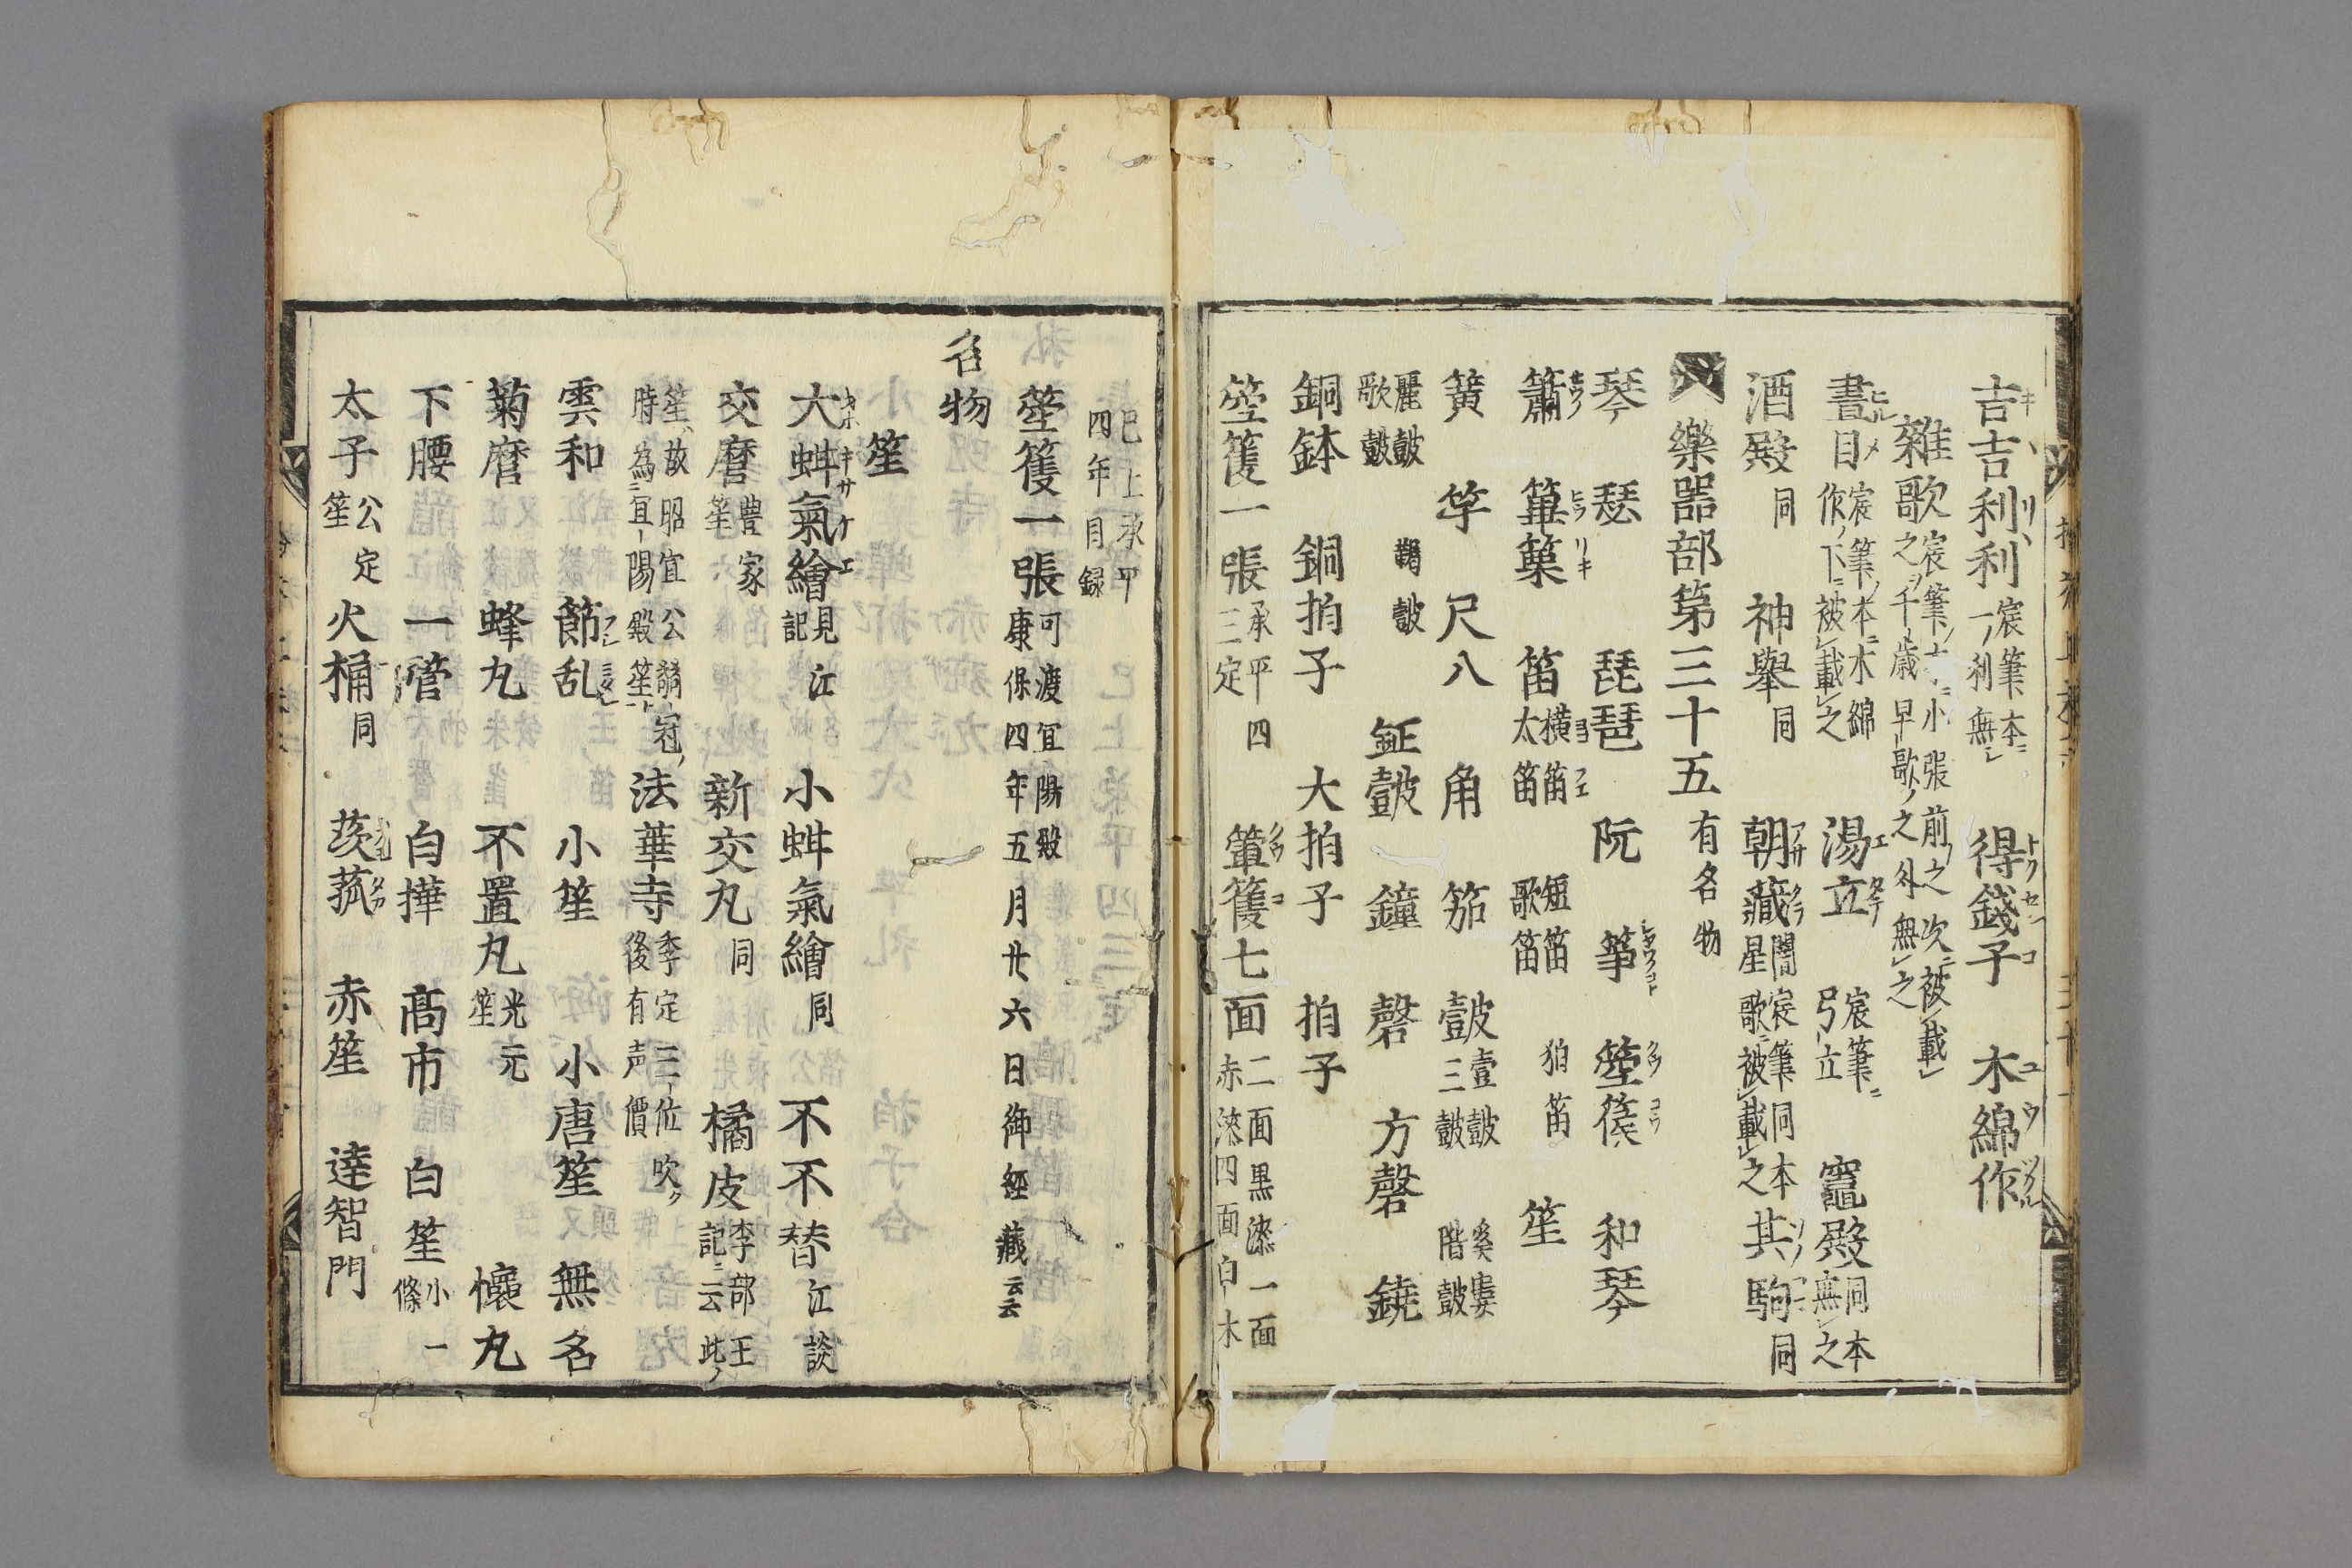 吉吉利利 宸筆本ニ一ノ利無シ 得錢子 木綿作
雜歌
晝目 宸筆ノ本ニ木綿作ノ下ニ被載之 湯立 宸筆ニ弓立 竈殿 同本無之
酒殿 同 神擧 同 朝藏 其駒 同
樂器部第三十五 有名物
琴 瑟 琵琶 阮 箏 箜篌 和琴
簫 篳篥 笛 橫笛 太笛 短笛 歌笛 狛笛 笙
簧 竽 尺八 角 笳 鼓 壹鼓 三鼓 奚婁 階鼓
麗鼓 歌鼓 鞨鼓 鉦鼓 鐘 磬 方磬 鐃
銅鉢 銅拍子 大拍子 拍子
箜篌一張 承平四三定 篳篌七面 二面黑漆一面赤漆四面白木
已上承平四年目録
箜篌一張 可渡宜陽殿 康保四年五月廿六日御經藏云云
名物
笙
大蚶氣繪 見江記 小蚶氣繪 同 不不替 江談
交麿 豊家笙 新交丸 同 橘皮 李部王記ニ云此ノ
笙ハ故昭宣公 冠 時為宜陽殿笙 法華寺 季定三位吹ク後有声價
雲和 節乱 小笙 小唐笙 無名
菊麿 蜂丸 不置丸 光元笙 懷丸
下腰 一管 白樺 髙市 白笙 小一條
太子 公定笙 火桶 同 茨菰 赤笙 達智門